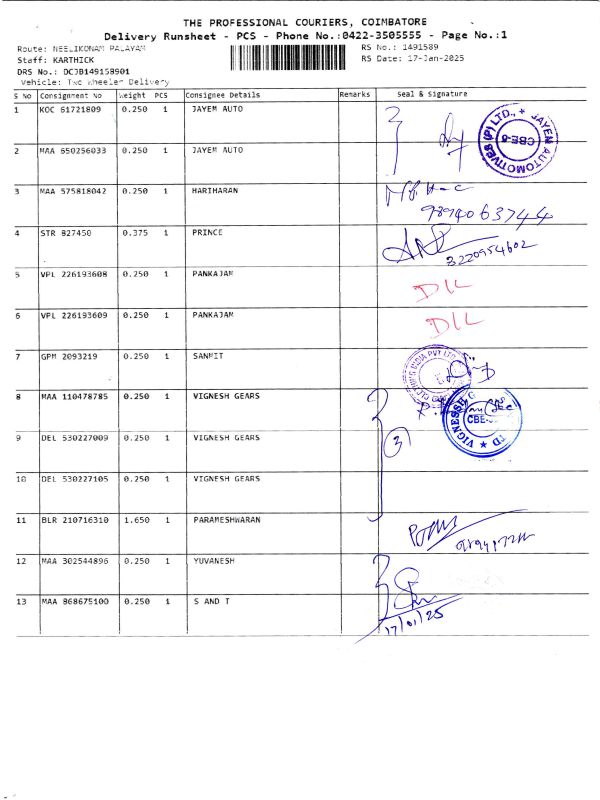 THE PROFESSIONAL COURIERS, COIMBATORE
Delivery Runsheet - PCS - Phone No.:0422-3505555 - Page No.:1
Route: NEELIKONAM PALAYAM
RS No.: 1491589
Staff: KARTHICK
RS Date: 17-Jan-2025
DRS No.: DCJB149158901
Vehicle: Two Wheeler Delivery
S No Consignment No Weight PCS Consignee Details Remarks Seal & Signature
1 KOC 61721809 0.250 1 JAYEM AUTO
JAYEM AUTOMOTIVES (P) LTD., * CBE-6
2 MAA 650256033 0.250 1 JAYEM AUTO
3 MAA 575818042 0.250 1 HARIHARAN
9894063744
4 STR 827450 0.375 1 PRINCE
8220954602
5 VPL 226193608 0.250 1 PANKAJAM DIL
6 VPL 226193609 0.250 1 PANKAJAM DIL
7 GPM 2093219 0.250 1 SANMIT
INDIA PVT LTD
8 MAA 110478785 0.250 1 VIGNESH GEARS
VIGNESSH
9 DEL 530227009 0.250 1 VIGNESH GEARS
3
10 DEL 530227105 0.250 1 VIGNESH GEARS
11 BLR 210716310 1.650 1 PARAMESHWARAN
12 MAA 302544896 0.250 1 YUVANESH
13 MAA 868675100 0.250 1 S AND T
17/01/25